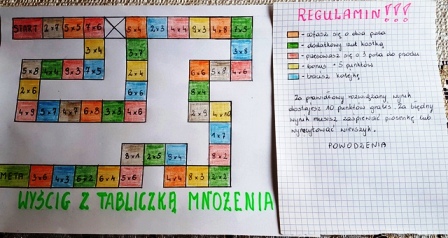 START 2×7 5×5 7×6 2×3 4×4 9×3 8×8
3×4 3×7 3×8
5×8 4×4 9×3 7×5 2×4 6×6 5×8
2×6 6×6 8×4
4×9 3×7 4×6 2×9 4×10
1×7
8×1 2×5 9×4 8×2
META 5×6 4×3 6×2 6×4 5×6 8×3 2×2
WYŚCIG Z TABLICZKĄ MNOŻENIA
REGULAMIN!!!
- cofasz się o dwa pola
- dodatkowy rzut kostką
- przesuwasz się o 3 pola do przodu
- bonus +5 punktów
- tracisz kolejkę
Za prawidłowy rozwiązany wynik
dostajesz 10 punktów gratis. Za błędny
wynik musisz zaśpiewać piosenkę lub
wyrecytować wierszyk.
POWODZENIA